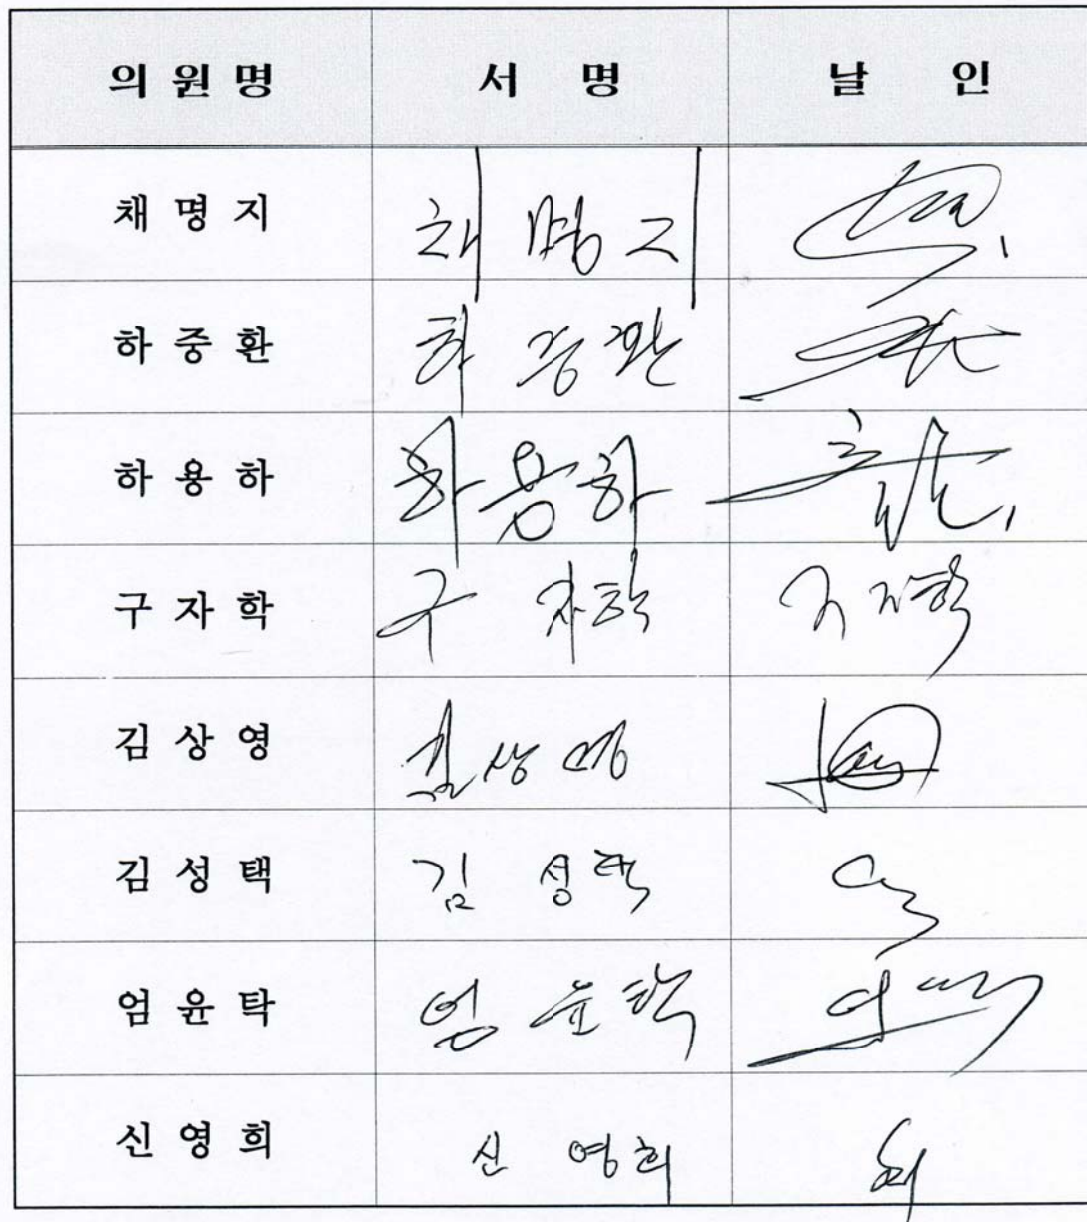 의원명 서명 날인
채명지 채명지
하중환 하중환
하용하 하용하
구자학 구자학 구자학
김상영 김상영
김성택 김성택
엄윤탁 엄윤탁
신영희 신영희